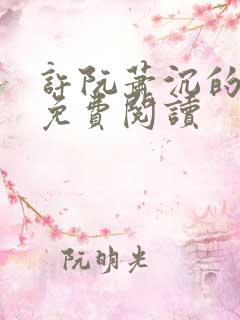 許阮蕭沉的
免費閱讀
阮明光